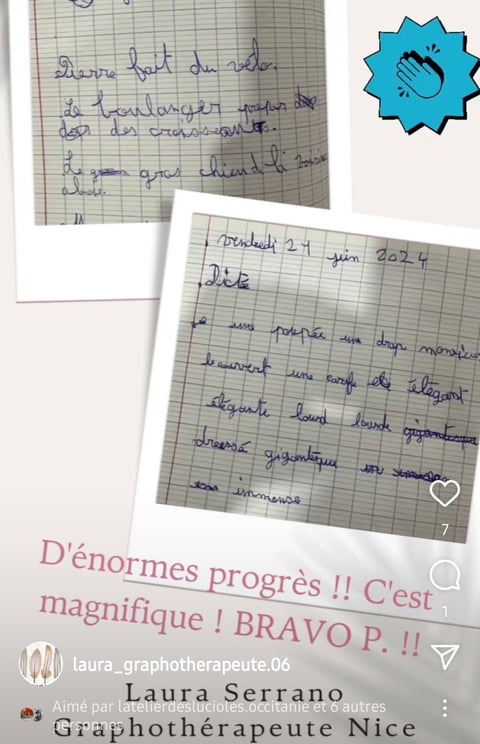 Pierre fait du vélo.
Le boulanger
des croissants.
Le gros chien d la
aboie.
vendredi 21 juin 2024
Dictée
une poupée un drap monsieur
une carafe élégant
élégante lourd lourde gigantesque
dressé gigantesque
immense
D'énormes progrès !! C'est
magnifique ! BRAVO P. !!
7
1
laura_graphotherapeute.06
Laura Serrano
Aimé par latelierdeslucioles.occitanie et 6 autres
personnes
Graphothérapeute Nice